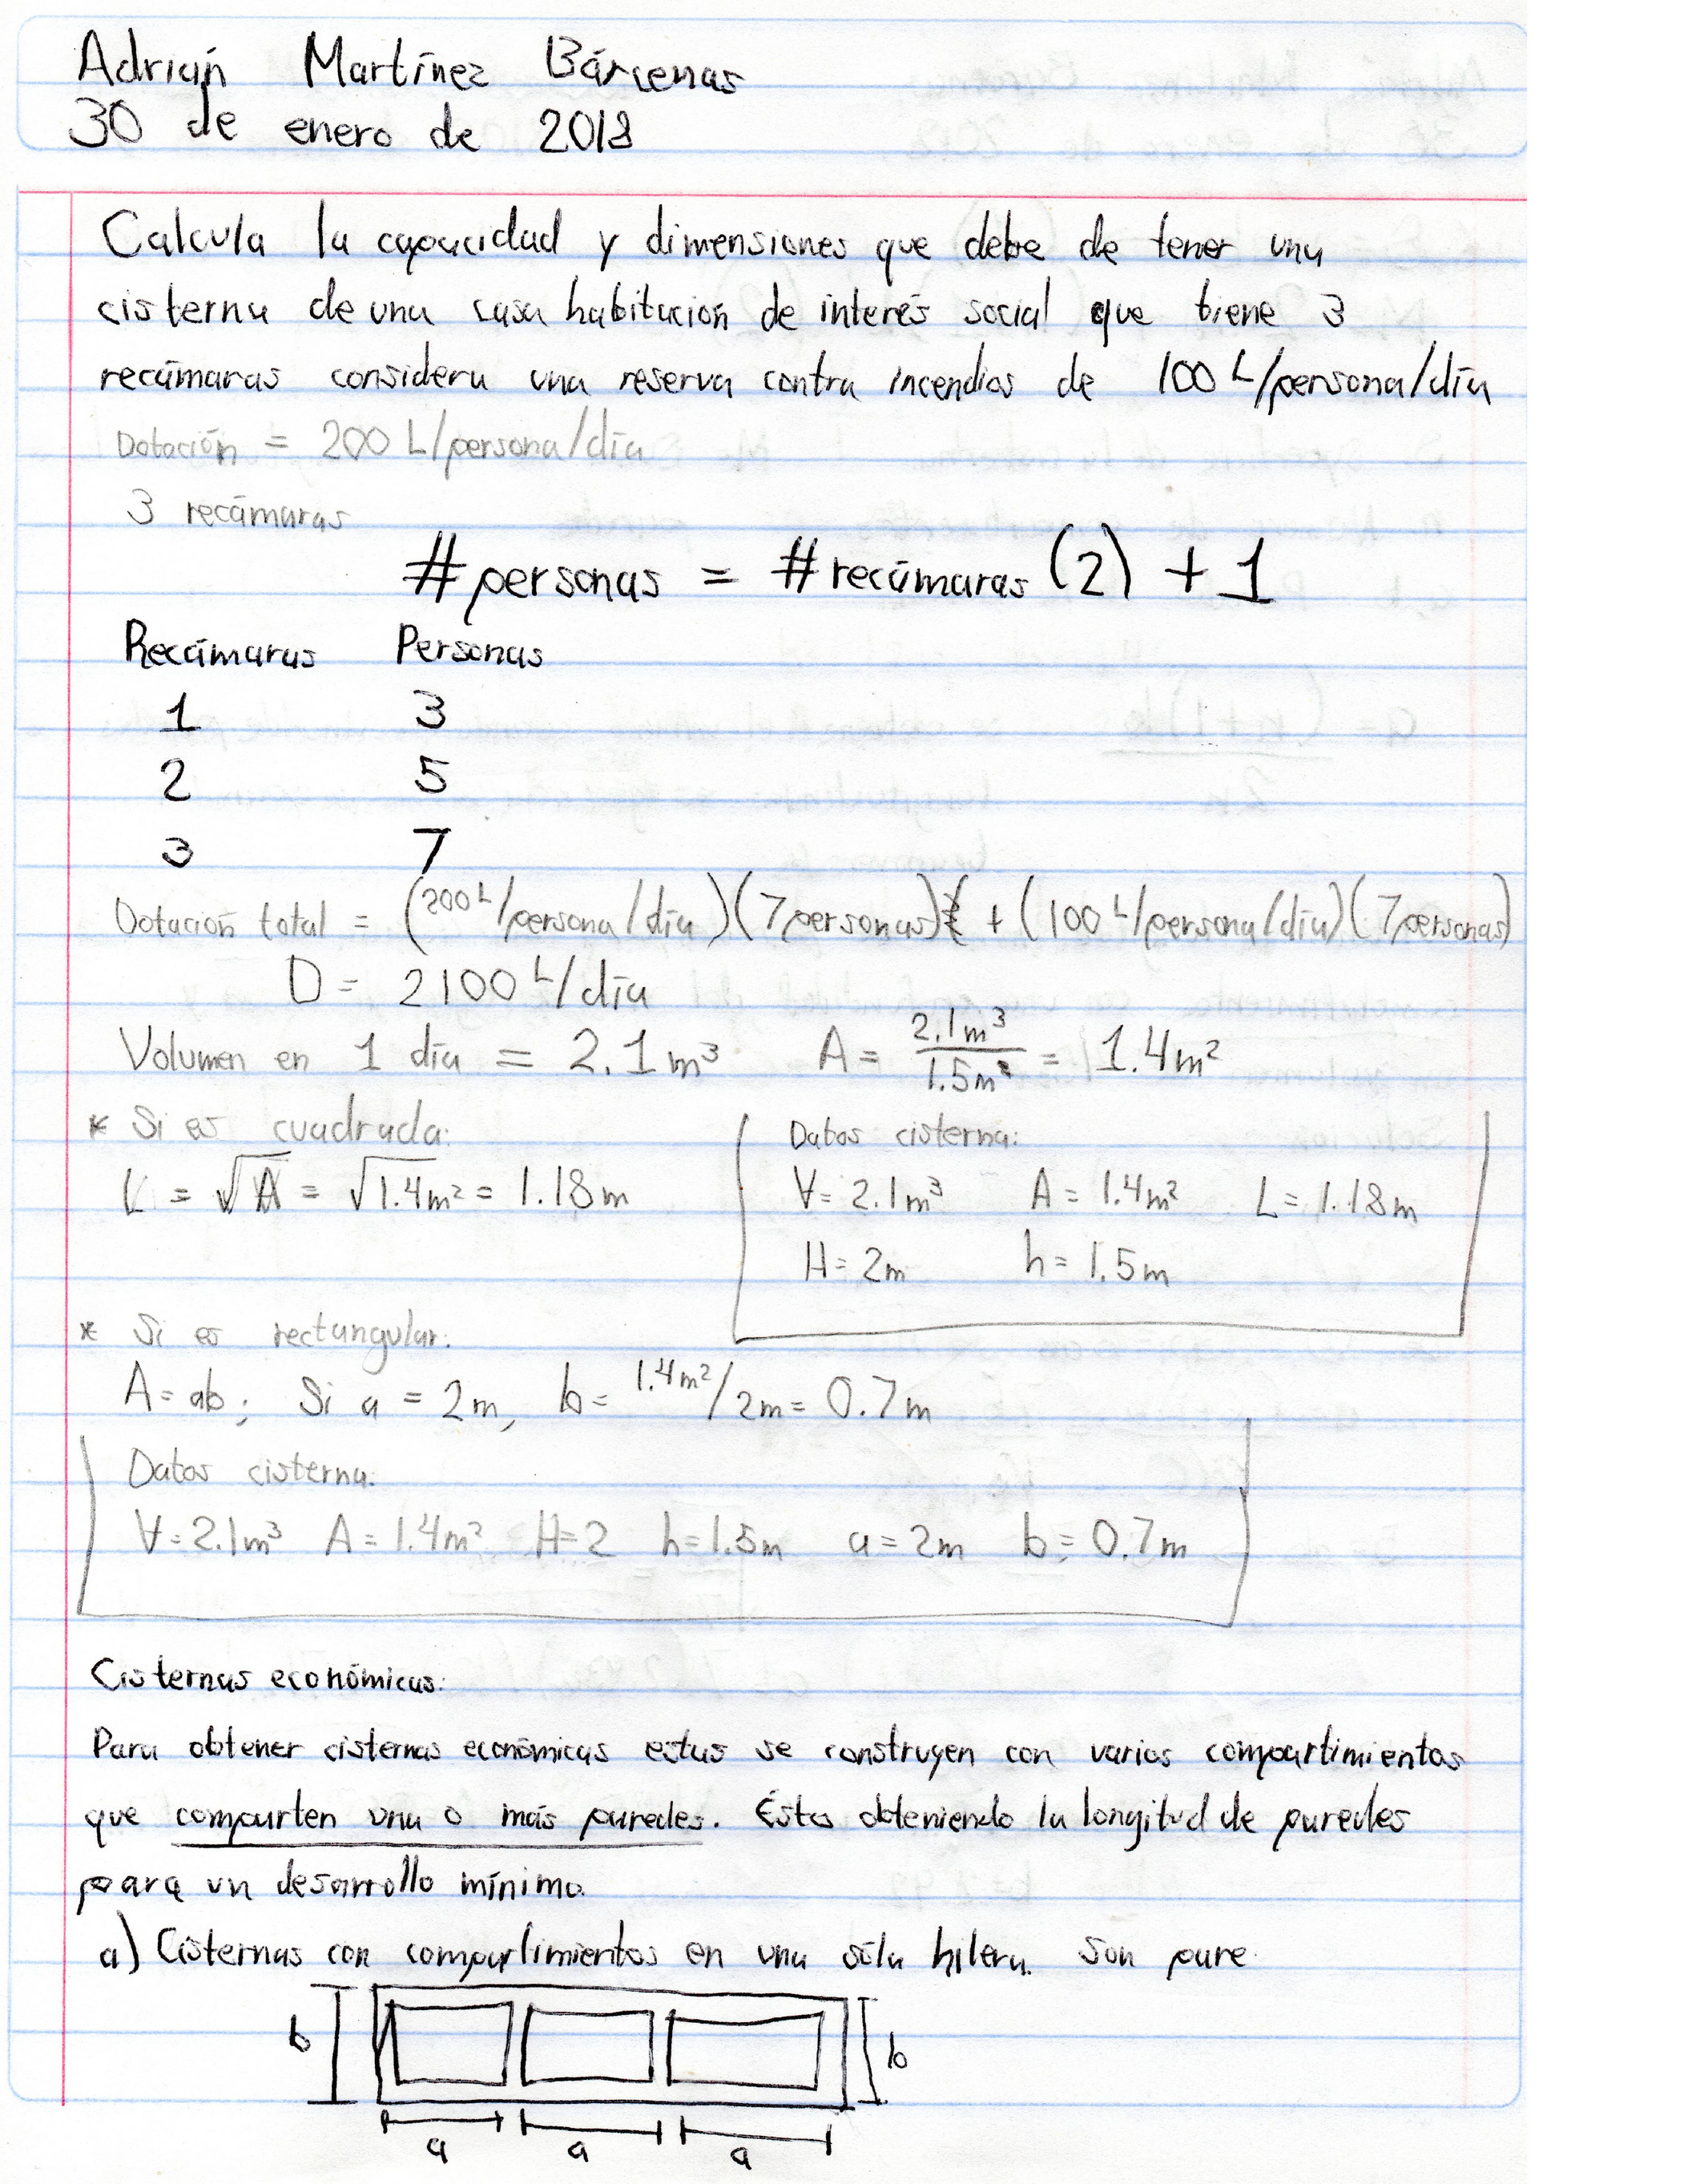 Adrián Martínez Bárcenas
30 de enero de 2018
Calcula la capacidad y dimensiones que debe de tener una
cisterna de una casa habitación de interés social que tiene 3
recámaras considera una reserva contra incendios de 100 L/persona/día
Dotación = 200 L/persona/día
3 recámaras
#personas = #recámaras (2) + 1
Recámaras Personas
1 3
2 5
3 7
Dotación total = (200 L/persona/día)(7 personas) + (100 L/persona/día)(7 personas)
D = 2100 L/día
Volumen en 1 día = 2.1 m³ A = 2.1m³/1.5m² = 1.4m²
* Si es cuadrada:
L = √A = √1.4m² = 1.18m
Datos cisterna:
V= 2.1m³ A= 1.4m² L= 1.18m
H= 2m h= 1.5m
* Si es rectangular:
A= ab; Si a = 2m, b= 1.4m²/2m= 0.7m
Datos cisterna:
V= 2.1m³ A= 1.4m² H=2 h=1.5m a=2m b= 0.7m
Cisternas económicas:
Para obtener cisternas económicas estas se construyen con varios compartimientos
que comparten una o más paredes. Estas obteniendo la longitud de paredes
para un desarrollo mínimo.
a) Cisternas con compartimientos en una sóla hilera. Son pare
b b
a a a